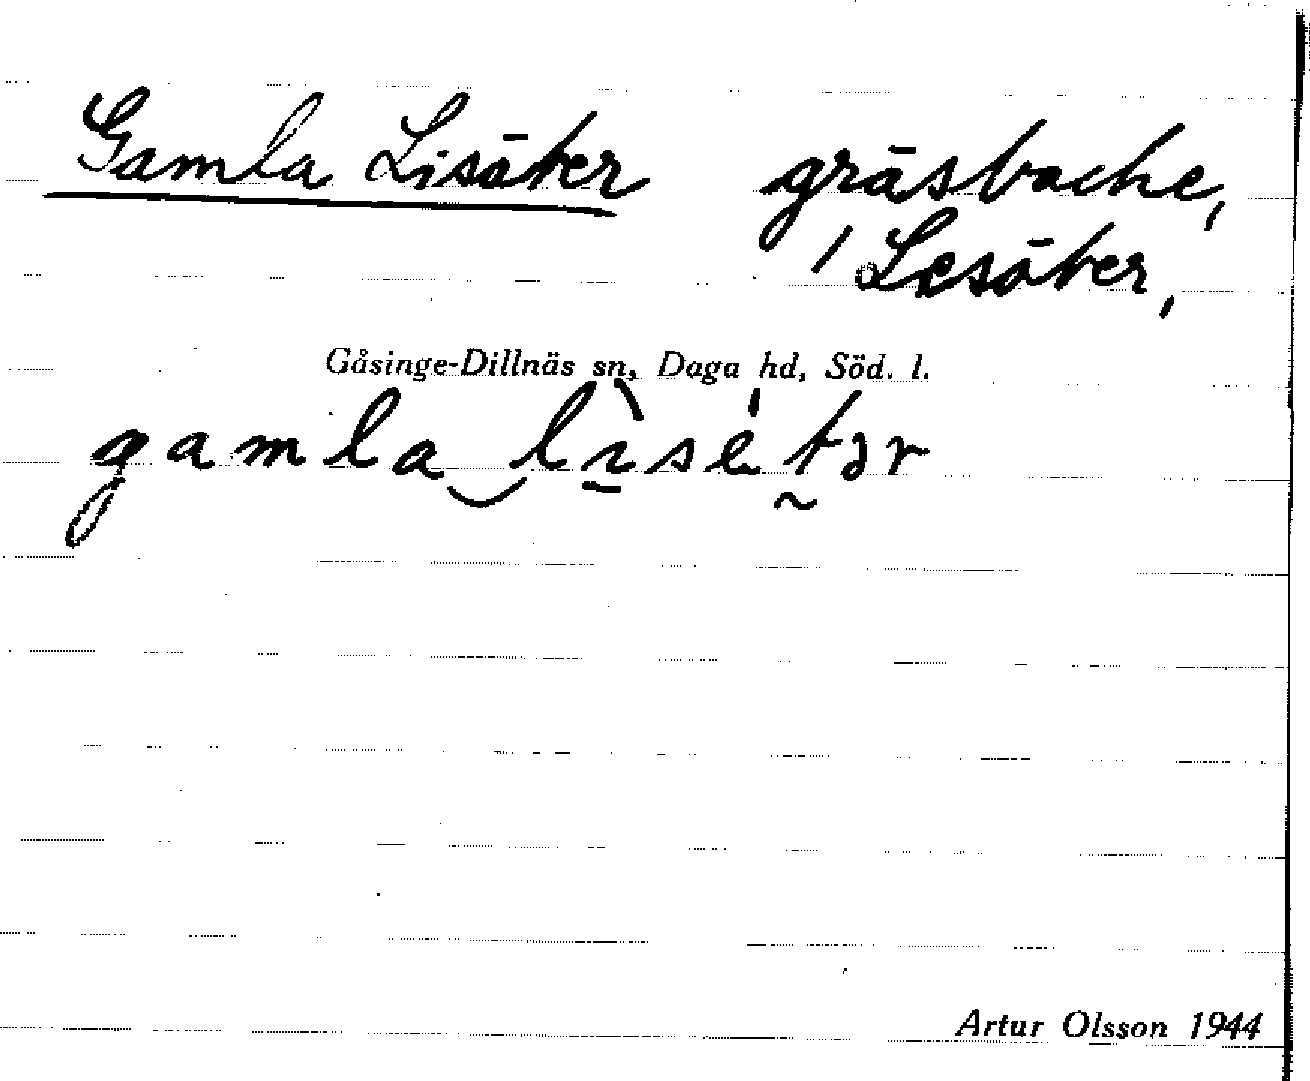 Gamla Lisäter gräsbacke,
/ Lisäter,
Gåsinge-Dillnäs sn, Daga hd, Söd. l.
gamla lìsétər
Artur Olsson 1944